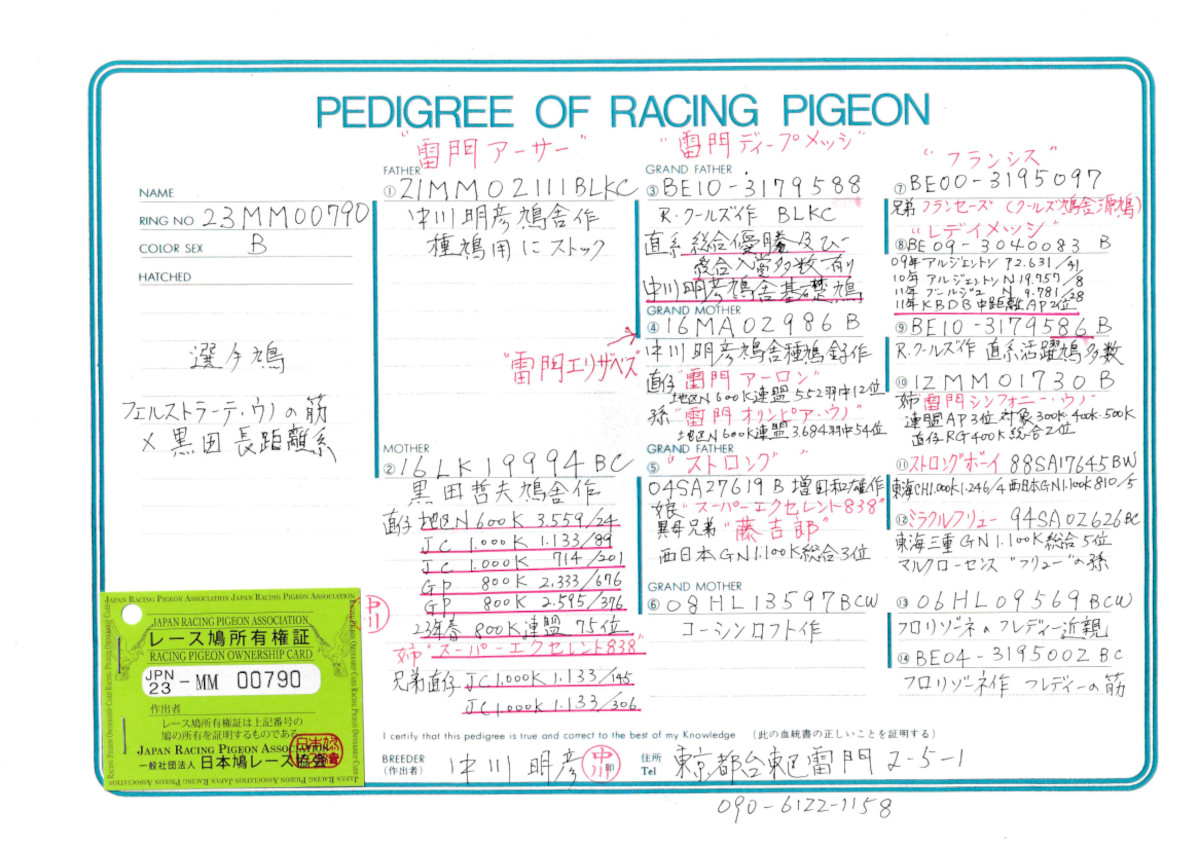 PEDIGREE OF RACING PIGEON
NAME
RING NO 23MM00790
COLOR SEX B
HATCHED
選手鳩
フェルストラーテ・ウノの筋
×黒田長距離系
"雷門アーサー"
FATHER
① 21MM02111BLKC
中川明彦鳩舎作
種鳩用にストック
MOTHER
② 16LK19994BC
黒田哲夫鳩舎作
直仔 地区N600K 3.559/24
JC 1.000K 1.133/89
JC 1.000K 714/201
GP 800K 2.333/676
GP 800K 2.595/376
23年春 800K連盟 75位
姉"スーパーエクセレント838"
兄弟直仔 JC1.000K 1.133/145
JC1.000K 1.133/306
"雷門ディープメッシ"
GRAND FATHER
③ BE10-3179588
R・クールズ作 BLKC
直系総合優勝及び
総合入賞多数有り
中川明彦鳩舎基礎鳩
GRAND MOTHER
④ 16MA02986B
"雷門エリザベス"
中川明彦鳩舎種鳩鶏作
直仔"雷門アーロン"
地区N600K連盟 552羽中12位
孫"雷門オリンピア・ウノ"
地区N600K連盟 3.684羽中54位
GRAND FATHER
⑤ "ストロング"
04SA27619B 増田和雄作
娘"スーパーエクセレント838"
異母兄弟"藤吉郎"
西日本GN1.100K総合3位
GRAND MOTHER
⑥ 08HL13597BCW
コーシンロフト作
"フランシス"
⑦ BE00-3195097
兄弟 フランセーズ(クールズ鳩舎源鳩)
"レディメッシ"
⑧ BE09-3040083 B
09年アルジェントン 72.631/41
10年アルジェントン N 19.757/8
11年ブールジュ N 9.781/28
11年KBDB中距離AP2位
⑨ BE10-3179586B
R・クールズ作 直系活躍鳩多数
⑩ 12MM01730B
姉 雷門シンフォニー・ウノ
連盟AP3位 対象300K・400K・500K
直仔RG400K総合2位
⑪ストロングボーイ 88SA17645BW
東海CH1.000K1.246/4 西日本GN1.100K810/5
⑫ミラクルフリュー 94SA02626BC
東海三重GN1.100K総合5位
マルクローセンス"フリュー"の孫
⑬ 06HL09569BCW
フロリゾーネのフレディー近親
⑭ BE04-3195002BC
フロリゾーネ作 フレディーの筋
I certify that this pedigree is true and correct to the best of my Knowledge (此の血統書の正しいことを証明する)
BREEDER
(作出者)
中川明彦
中川
印
住所
Tel
東京都台東区雷門2-5-1
090-6122-1158
中川
JAPAN RACING PIGEON ASSOCIATION JAPAN RACING PIGEON ASSOCIATION
JAPAN RACING PIGEON ASSOCIATION
レース鳩所有権証
RACING PIGEON OWNERSHIP CARD
JPN
23 -MM 00790
作出者
レース鳩所有権証は上記番号の
鳩の所有を証明するものである
JAPAN RACING PIGEON ASSOCIATION
一般社団法人 日本鳩レース協会